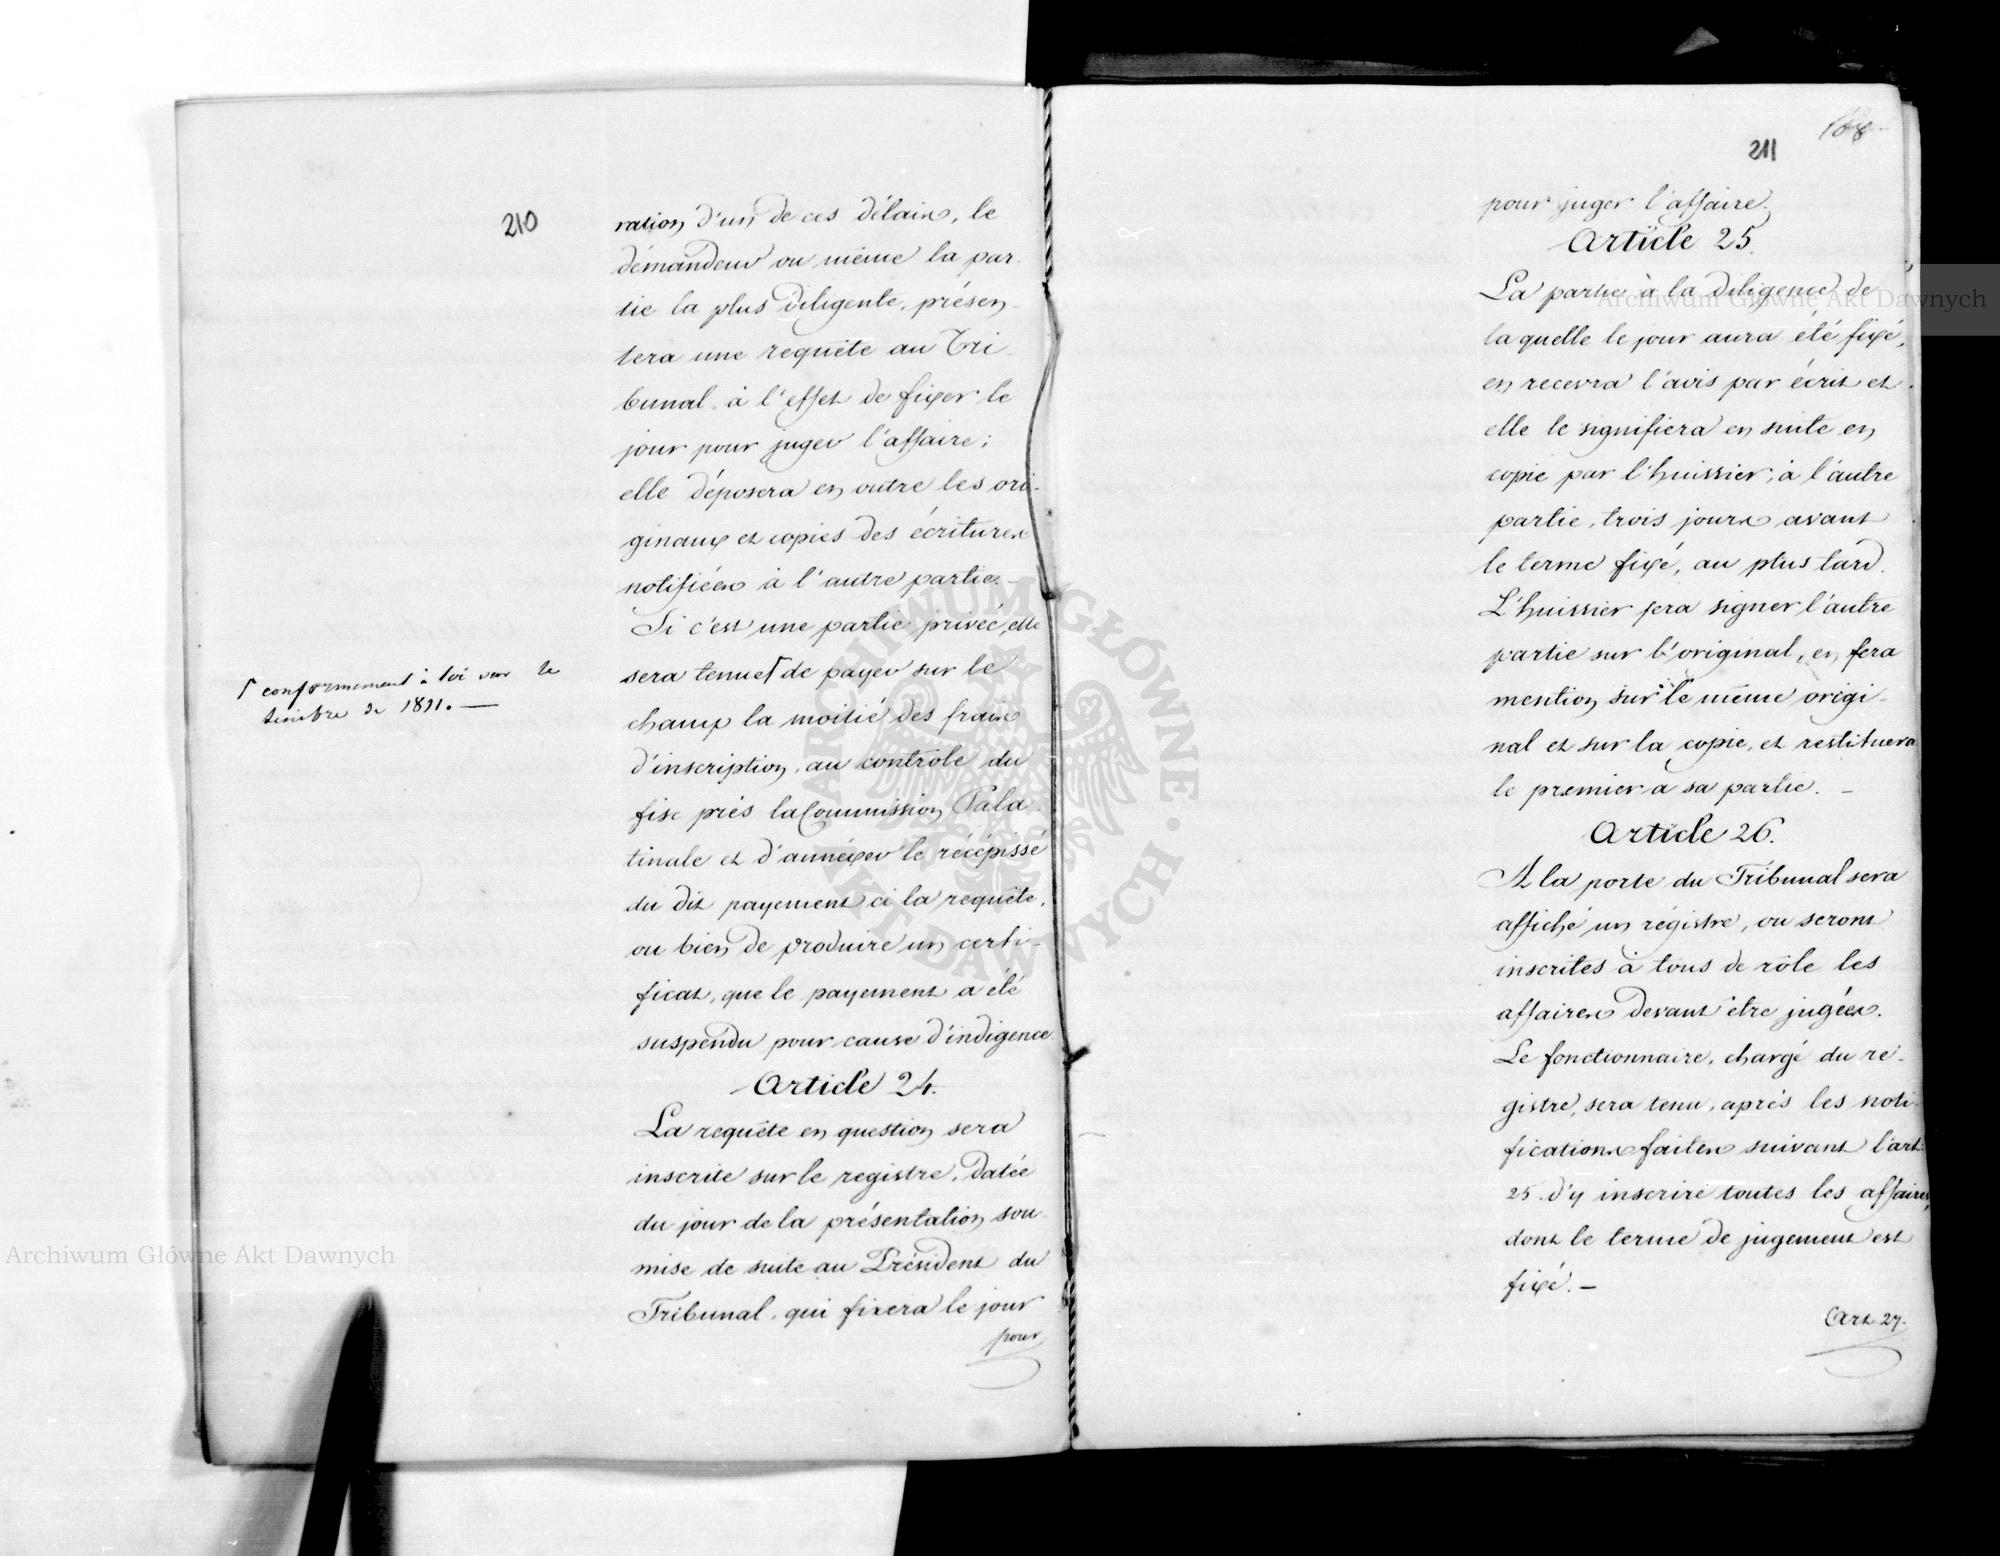 210
ration d'un de ces délais, le
démandeur ou même la par-
tie la plus diligente, présen-
tera une requête au Tri-
bunal, à l'effet de fixer le
jour pour juger l'affaire;
elle déposera en outre les ori-
ginaux et copies des écritures
notifiées à l'autre partie. —
Si c'est une partie privée, elle
sera tenue de payer sur le
champ la moitié des frais
d'inscription, au contrôle du
fisc près la Commission Pala-
tinale et d'annéxer le récépissé
du dit payement à la requête,
ou bien de produire un certi-
ficat, que le payement a été
suspendu pour cause d'indigence.
conformement à loi sur le
timbre de 1811. —
Article 24.
La requête en question sera
inscrite sur le registre, datée
du jour de la présentation sou-
mise de suite au Président du
Tribunal, qui fixera le jour
pour
168
211
pour juger l'affaire.
Article 25.
La partie à la diligence de
laquelle le jour aura été fixé,
en recevra l'avis par écrit et
elle le signifiera en suite en
copie par l'huissier, à l'autre
partie, trois jours avant
le terme fixé, au plus tard.
L'huissier fera signer l'autre
partie sur l'original, en fera
mention sur le même origi-
nal et sur la copie, et restituera
le premier a sa partie. —
Article 26.
A la porte du Tribunal sera
affiché un régistre, ou seront
inscrites à tous de rôle les
affaires devant être jugées.
Le fonctionnaire, chargé du ré-
gistre, sera tenu, après les noti-
fications faites suivant l'art:
25. d'y inscrire toutes les affaires,
dont le terme de jugement est
fixé. —
Art 27.
Archiwum Główne Akt Dawnych
Archiwum Główne Akt Dawnych
ARCHIWUM GŁÓWNE · AKT DAWNYCH ·